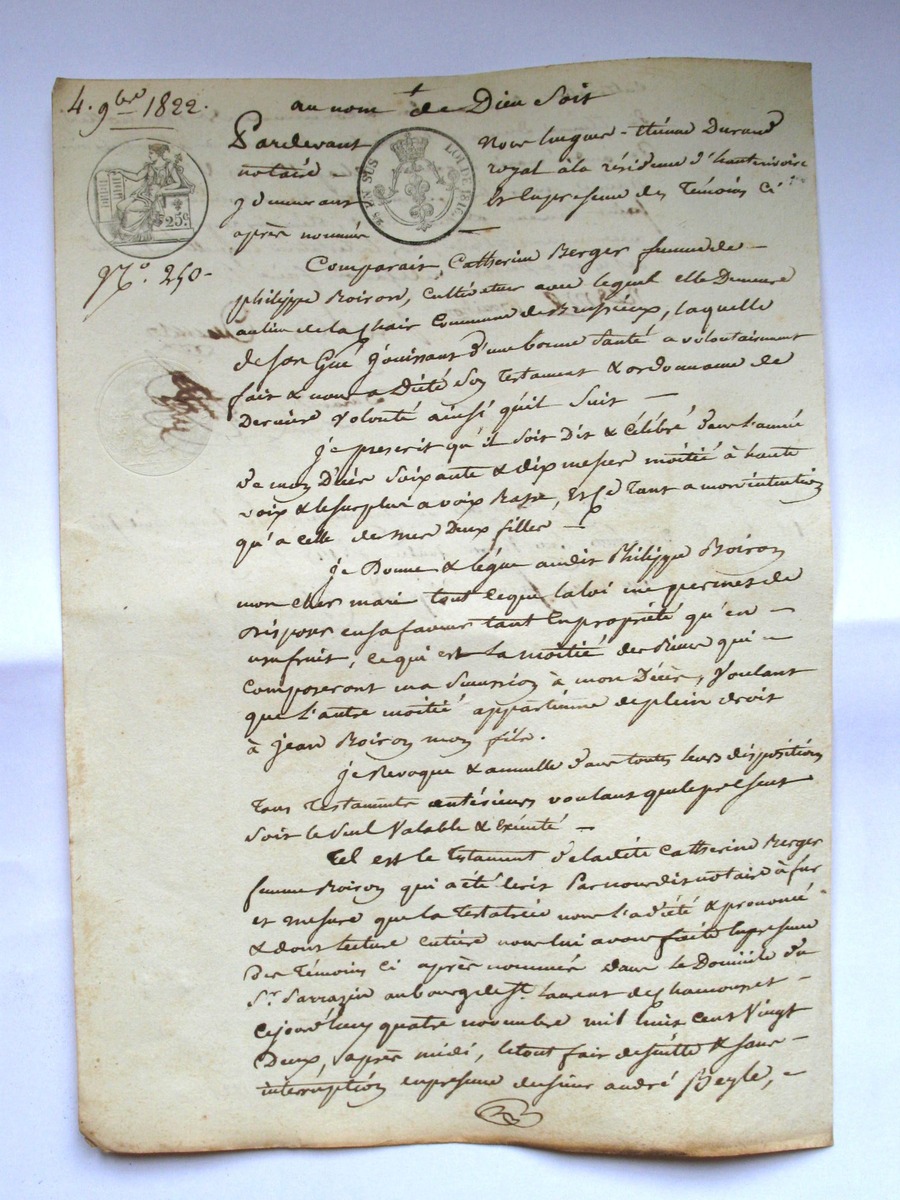 4. 9bre 1822.
au nom de Dieu soit
Pardevant Nous hugues - Etienne Durand
notaire - royal à la résidence d'hauterivoire
y demeurant et en presence des Témoins ci
après nommés -
25 EN SUS LOI DE 1816.
TIMBRE ROYAL
25c.
N.o 250 -
Comparait, Catherine Berger femme de -
philippe Boiron, cultivateur avec lequel elle Demeure
au lieu de la Chair Commune de Brussieux, laquelle
de Son Gré Jouissant d'une bonne Santé a volontairement
fait & nous a Dicté Son Testament & ordonnance de
Derniere Volonté ainsi qu'il Suit -
je prescrit qu'il Soit Dit & Célébré dans l'année
de mon Décès Soixante & dix messes moitié à haute
voix & le surplus a voix Basse, & Ce tant a mon intention
qu'a celle de mes Deux filles -
je Donne & légue audit Philippe Boiron
mon cher mari tout ce que la loi me permet de
Disposer en sa faveur tant en propriété qu'en -
usufruit, ce qui est la moitié des Biens qui -
Composeront ma Succession à mon Décès, Voulant
que l'autre moitié appartienne de plein droit
à jean Boiron mon fils.
je Revoque & annulle dans toutes leurs dispositions
Tous Testaments antérieurs voulant que le présent
Soit le Seul Valable & Exécuté -
Tel est le Testament de ladite Catherine Berger
femme Boiron qui a été écrit Par nous dit notaire à fur
et mesure que la Testatrice nous l'a dicté & prononcé
& dont lecture entière nous lui avons faite en presence
des Témoins Ci après nommés dans le Domicile du
Sr. Sarrazin au bourg de St. Laurent de Chamousset -
Cejourd'huy quatre novembre mil huit cent Vingt
Deux, après midi, le tout fait de suitte & sans -
interruption en presence des sieur andré Beyle, -